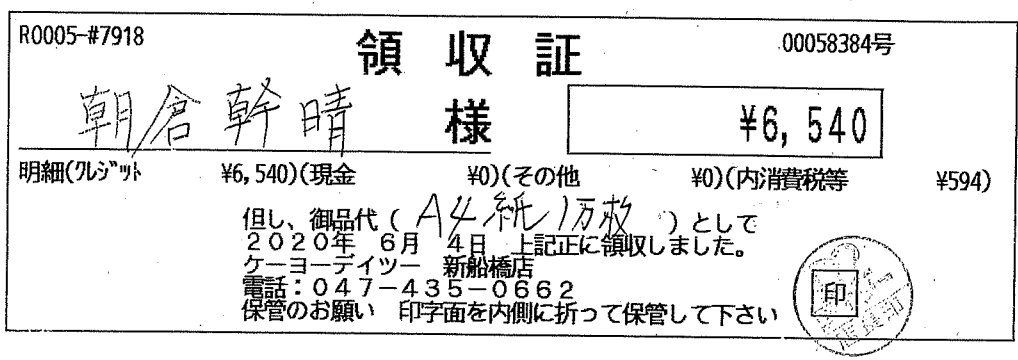 R0005-#7918
領収証
00058384号
朝倉幹晴 様 ¥6,540
明細(クレジット ¥6,540)(現金 ¥0)(その他 ¥0)(内消費税等 ¥594)
但し、御品代(A4紙1万枚)として
2020年 6月 4日 上記正に領収しました。
ケーヨーデイツー 新船橋店
電話:047-435-0662
保管のお願い 印字面を内側に折って保管して下さい
印